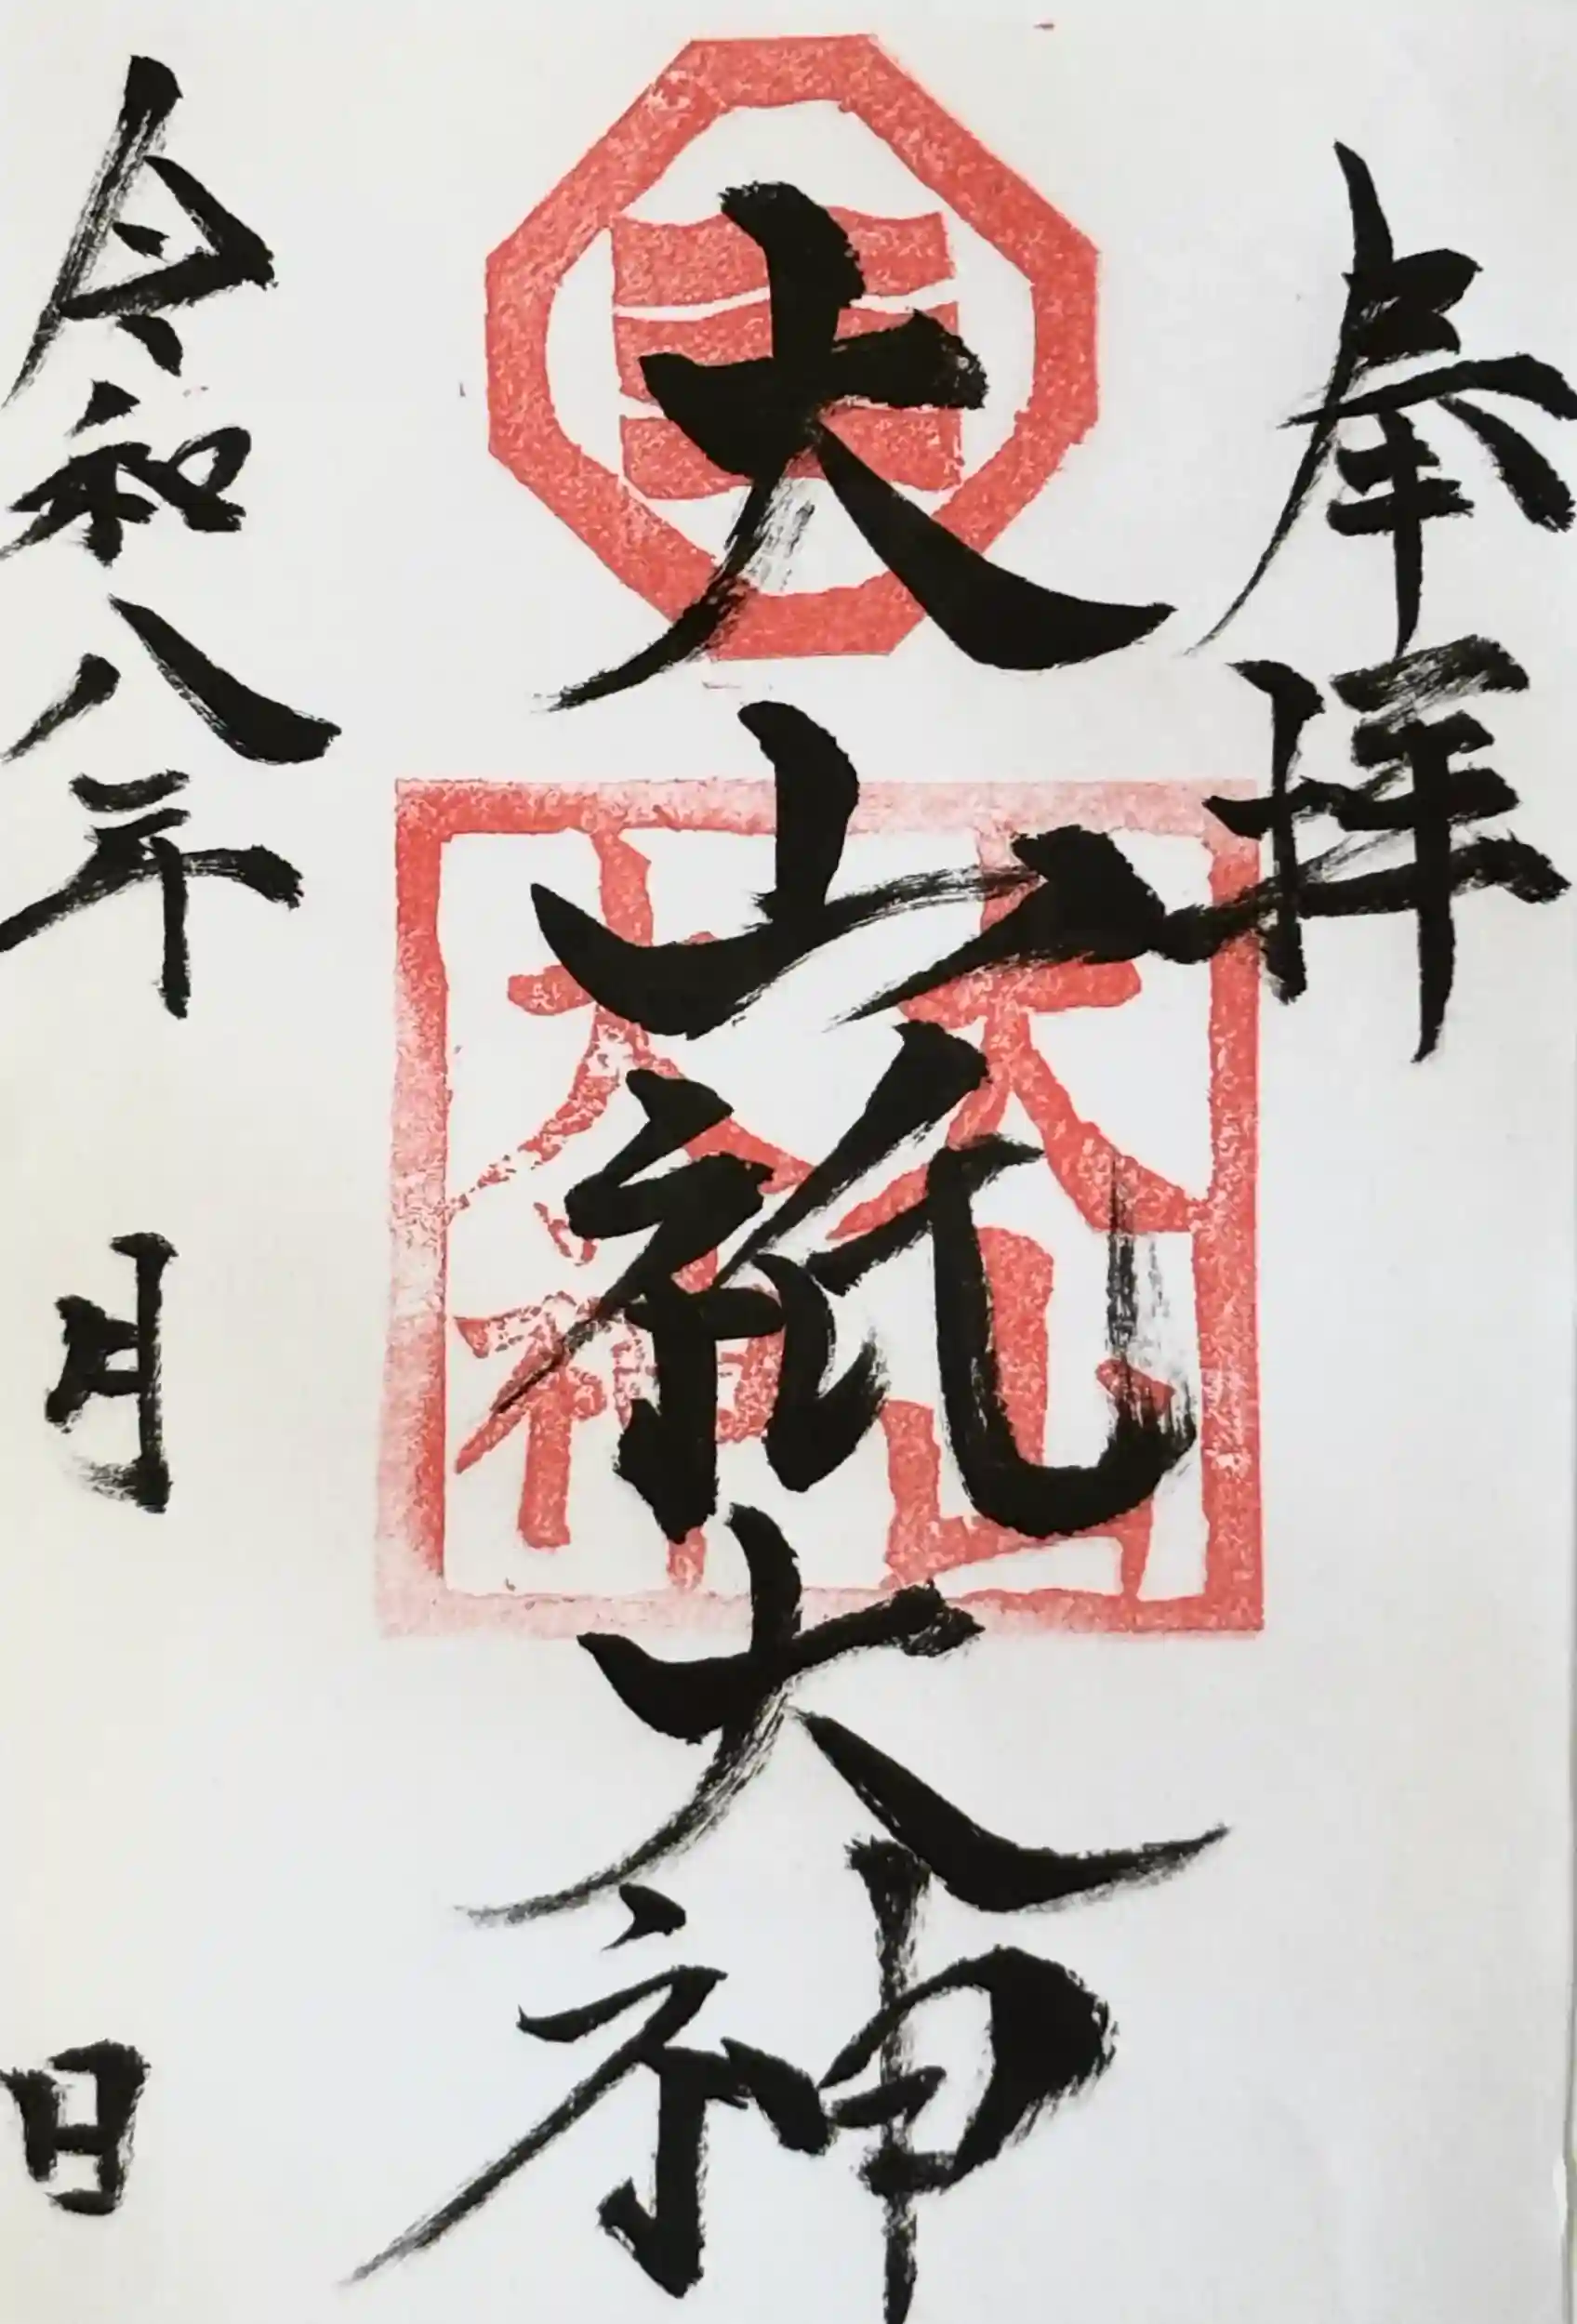 奉拝
大山祇大神
大山大神
令和八年 月 日